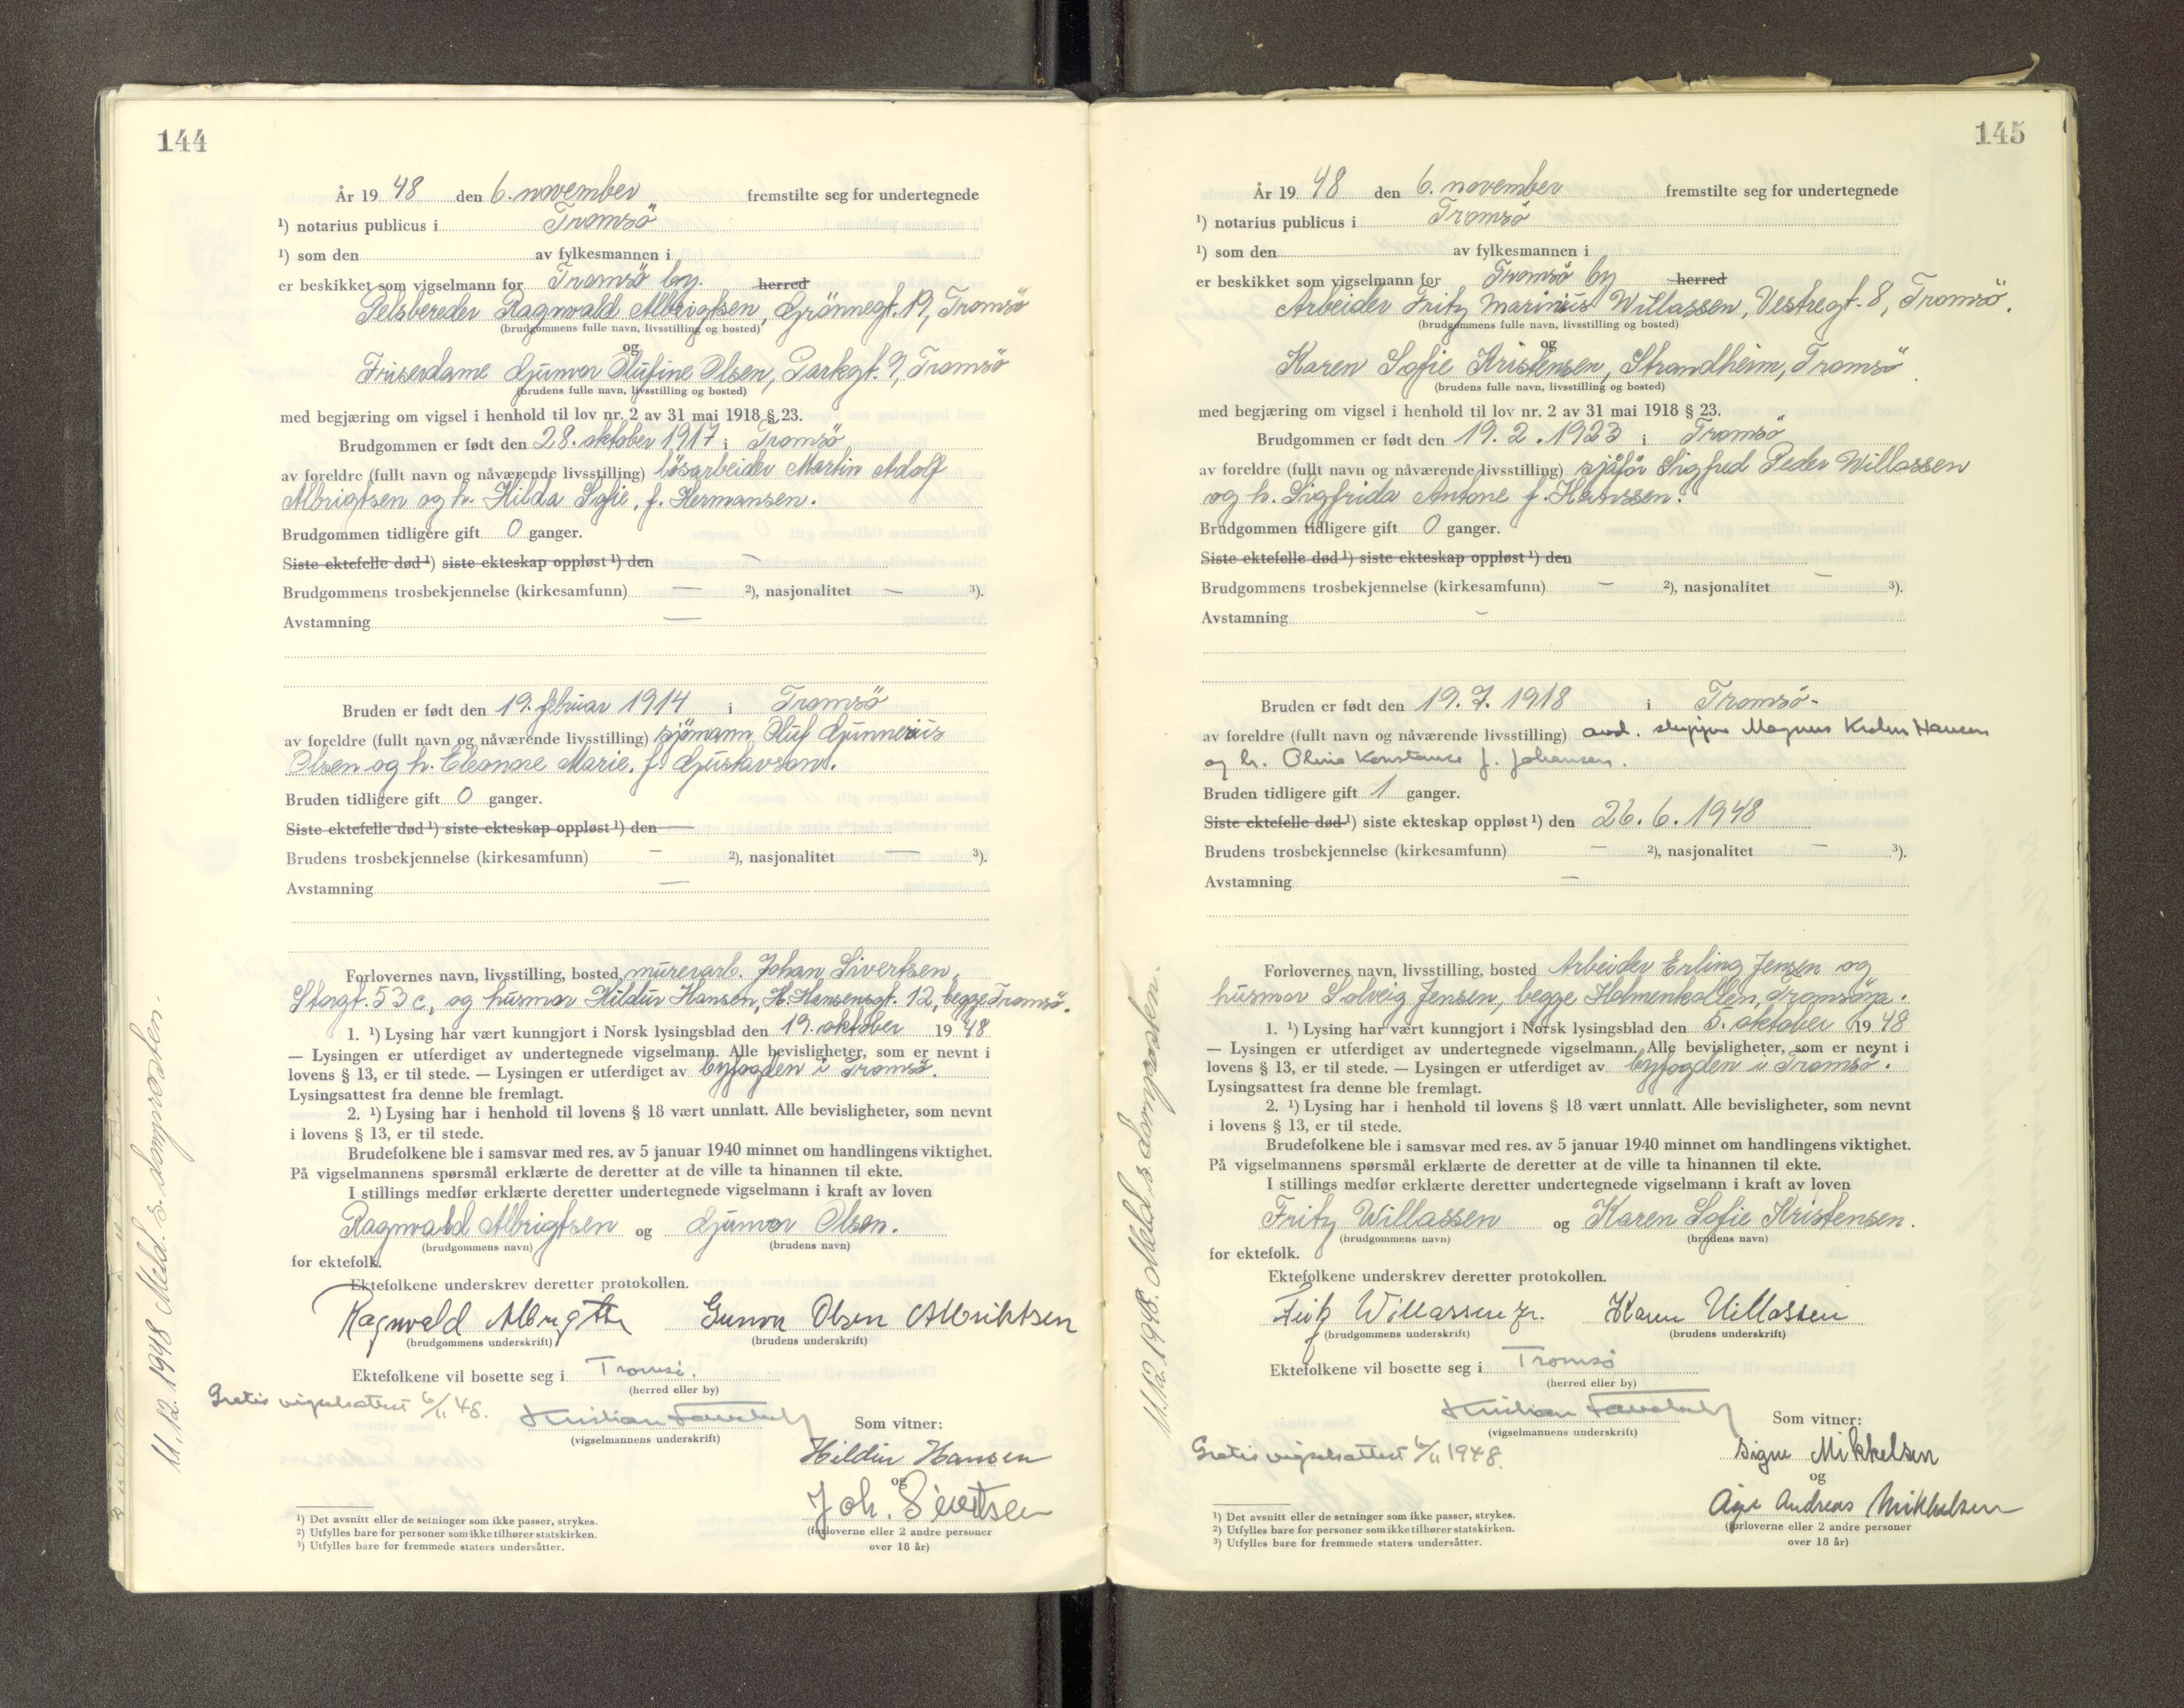 144
År 19 48 den 6. november fremstilte seg for undertegnede
¹) notarius publicus i Tromsö
¹) som den av fylkesmannen i
er beskikket som vigselmann for Tromsö by. herred
Pelsbereder Ragnvald Albrigtsen, Grönnegt. 19, Tromsö
(brudgommens fulle navn, livsstilling og bosted)
og
Friserdame Gunvor Olufine Olsen, Parkgt. 9, Tromsö
(brudens fulle navn, livsstilling og bosted)
med begjæring om vigsel i henhold til lov nr. 2 av 31 mai 1918 § 23.
Brudgommen er født den 28. oktober 1917 i Tromsö
av foreldre (fullt navn og nåværende livsstilling) lösarbeider Martin Adolf
Albrigtsen og h. Hilda Sofie, f. Hermansen.
Brudgommen tidligere gift 0 ganger.
Siste ektefelle død ¹) siste ekteskap oppløst ¹) den —
Brudgommens trosbekjennelse (kirkesamfunn) — ²), nasjonalitet — ³).
Avstamning —
Bruden er født den 19. februar 1914 i Tromsö
av foreldre (fullt navn og nåværende livsstilling) sjömann Oluf Gunnerius
Olsen og h. Eleonore Marie, f. Gustavson.
Bruden tidligere gift 0 ganger.
Siste ektefelle død ¹) siste ekteskap oppløst ¹) den —
Brudens trosbekjennelse (kirkesamfunn) — ²), nasjonalitet — ³).
Avstamning —
Forlovernes navn, livsstilling, bosted murerarb. Johan Sivertsen,
Storgt. 53 c, og husmor Hildur Hansen, H. Hansensgt. 12, begge Tromsö.
1. ¹) Lysing har vært kunngjort i Norsk lysingsblad den 19. oktober 19 48
— Lysingen er utferdiget av undertegnede vigselmann. Alle bevisligheter, som er nevnt i
lovens § 13, er til stede. — Lysingen er utferdiget av byfogden i Tromsö.
Lysingsattest fra denne ble fremlagt.
2. ¹) Lysing har i henhold til lovens § 18 vært unnlatt. Alle bevisligheter, som nevnt
i lovens § 13, er til stede.
Brudefolkene ble i samsvar med res. av 5 januar 1940 minnet om handlingens viktighet.
På vigselmannens spørsmål erklærte de deretter at de ville ta hinannen til ekte.
I stillings medfør erklærte deretter undertegnede vigselmann i kraft av loven
Ragnvald Albrigtsen og Gunvor Olsen.
(brudgommens navn) (brudens navn)
for ektefolk.
Ektefolkene underskrev deretter protokollen.
Ragnvald Albrigtsen Gunvor Olsen Albriktsen
(brudgommens underskrift) (brudens underskrift)
Ektefolkene vil bosette seg i Tromsö.
(herred eller by)
Gratis vigselsattest 6/11 48.
(vigselmannens underskrift)
Som vitner:
Hildur Hansen
og
Joh. Sivertsen
(forloverne eller 2 andre personer
over 18 år)
¹) Det avsnitt eller de setninger som ikke passer, strykes.
²) Utfylles bare for personer som ikke tilhører statskirken.
³) Utfylles bare for fremmede staters undersåtter.
11.12.1948 Meld. s. domprosten.
145
År 19 48 den 6. november fremstilte seg for undertegnede
¹) notarius publicus i Tromsö
¹) som den av fylkesmannen i
er beskikket som vigselmann for Tromsö by herred
Arbeider Fritz Marinius Willassen, Vestregt. 8, Tromsö.
(brudgommens fulle navn, livsstilling og bosted)
og
Karen Sofie Kristensen, Strandheim, Tromsö
(brudens fulle navn, livsstilling og bosted)
med begjæring om vigsel i henhold til lov nr. 2 av 31 mai 1918 § 23.
Brudgommen er født den 19. 2. 1923 i Tromsö
av foreldre (fullt navn og nåværende livsstilling) sjåför Sigfred Peder Willassen
og h. Sigfrida Antone f. Hanssen.
Brudgommen tidligere gift 0 ganger.
Siste ektefelle død ¹) siste ekteskap oppløst ¹) den
Brudgommens trosbekjennelse (kirkesamfunn) — ²), nasjonalitet — ³).
Avstamning —
Bruden er født den 19. 7. 1918 i Tromsö.
av foreldre (fullt navn og nåværende livsstilling) avd. skipper Magnus Hansen
og h. Oline Konstanse f. Johansen.
Bruden tidligere gift 1 ganger.
Siste ektefelle død ¹) siste ekteskap oppløst ¹) den 26. 6. 1948
Brudens trosbekjennelse (kirkesamfunn) — ²), nasjonalitet — ³).
Avstamning —
Forlovernes navn, livsstilling, bosted Arbeider Erling Jensen og
husmor Solveig Jensen, begge Holmenkollen, Tromsöya.
1. ¹) Lysing har vært kunngjort i Norsk lysingsblad den 5. oktober 19 48
— Lysingen er utferdiget av undertegnede vigselmann. Alle bevisligheter, som er nevnt i
lovens § 13, er til stede. — Lysingen er utferdiget av byfogden i Tromsö.
Lysingsattest fra denne ble fremlagt.
2. ¹) Lysing har i henhold til lovens § 18 vært unnlatt. Alle bevisligheter, som nevnt
i lovens § 13, er til stede.
Brudefolkene ble i samsvar med res. av 5 januar 1940 minnet om handlingens viktighet.
På vigselmannens spørsmål erklærte de deretter at de ville ta hinannen til ekte.
I stillings medfør erklærte deretter undertegnede vigselmann i kraft av loven
Fritz Willassen og Karen Sofie Kristensen.
(brudgommens navn) (brudens navn)
for ektefolk.
Ektefolkene underskrev deretter protokollen.
Fritz Willassen jr. Karen Willassen
(brudgommens underskrift) (brudens underskrift)
Ektefolkene vil bosette seg i Tromsö
(herred eller by)
(vigselmannens underskrift)
Gratis vigselsattest 6/11 1948.
Som vitner:
Signe Mikkelsen
og
Age Andreas Mikkelsen
(forloverne eller 2 andre personer
over 18 år)
¹) Det avsnitt eller de setninger som ikke passer, strykes.
²) Utfylles bare for personer som ikke tilhører statskirken.
³) Utfylles bare for fremmede staters undersåtter.
11.12.1948. Meld. s. domprosten.